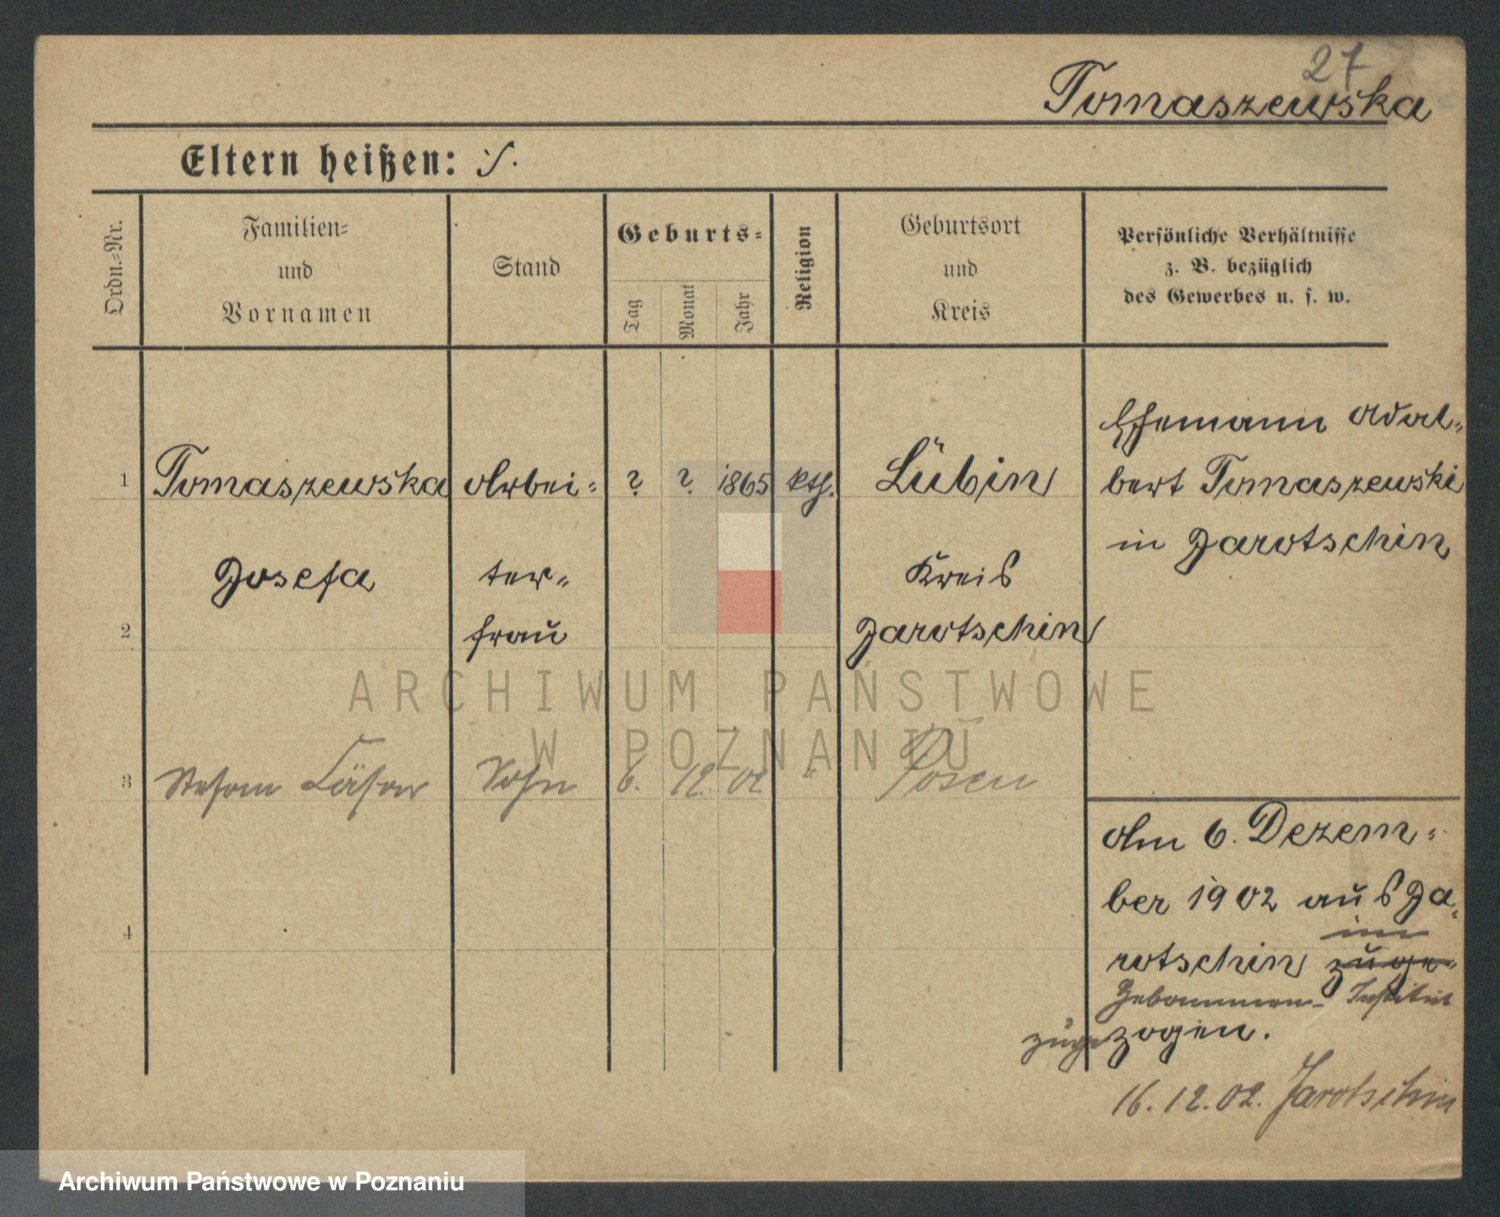 27
Tomaszewska
Eltern heißen: ·/·
Ordn.-Nr.
Familien-
und
Vornamen
Stand
Geburts-
Tag
Monat
Jahr
Religion
Geburtsort
und
Kreis
Persönliche Verhältnisse
z. B. bezüglich
des Gewerbes u. s. w.
1 Tomaszewska Arbei- ? ? 1865 kth. Lübin
Josefa ter- Kreis
2 frau Jarotschin
Ehemann Adal-
bert Tomaszewski
in Jarotschin
3 Stefan Sohn 6. 12 02 " Posen
4
Am 6. Dezem-
ber 1902 aus Ja-
im
rotschin zuge-
Hebammen-Institut
zuge zogen.
16.12.02. Jarotschin
ARCHIWUM PAŃSTWOWE
W POZNANIU
Archiwum Państwowe w Poznaniu